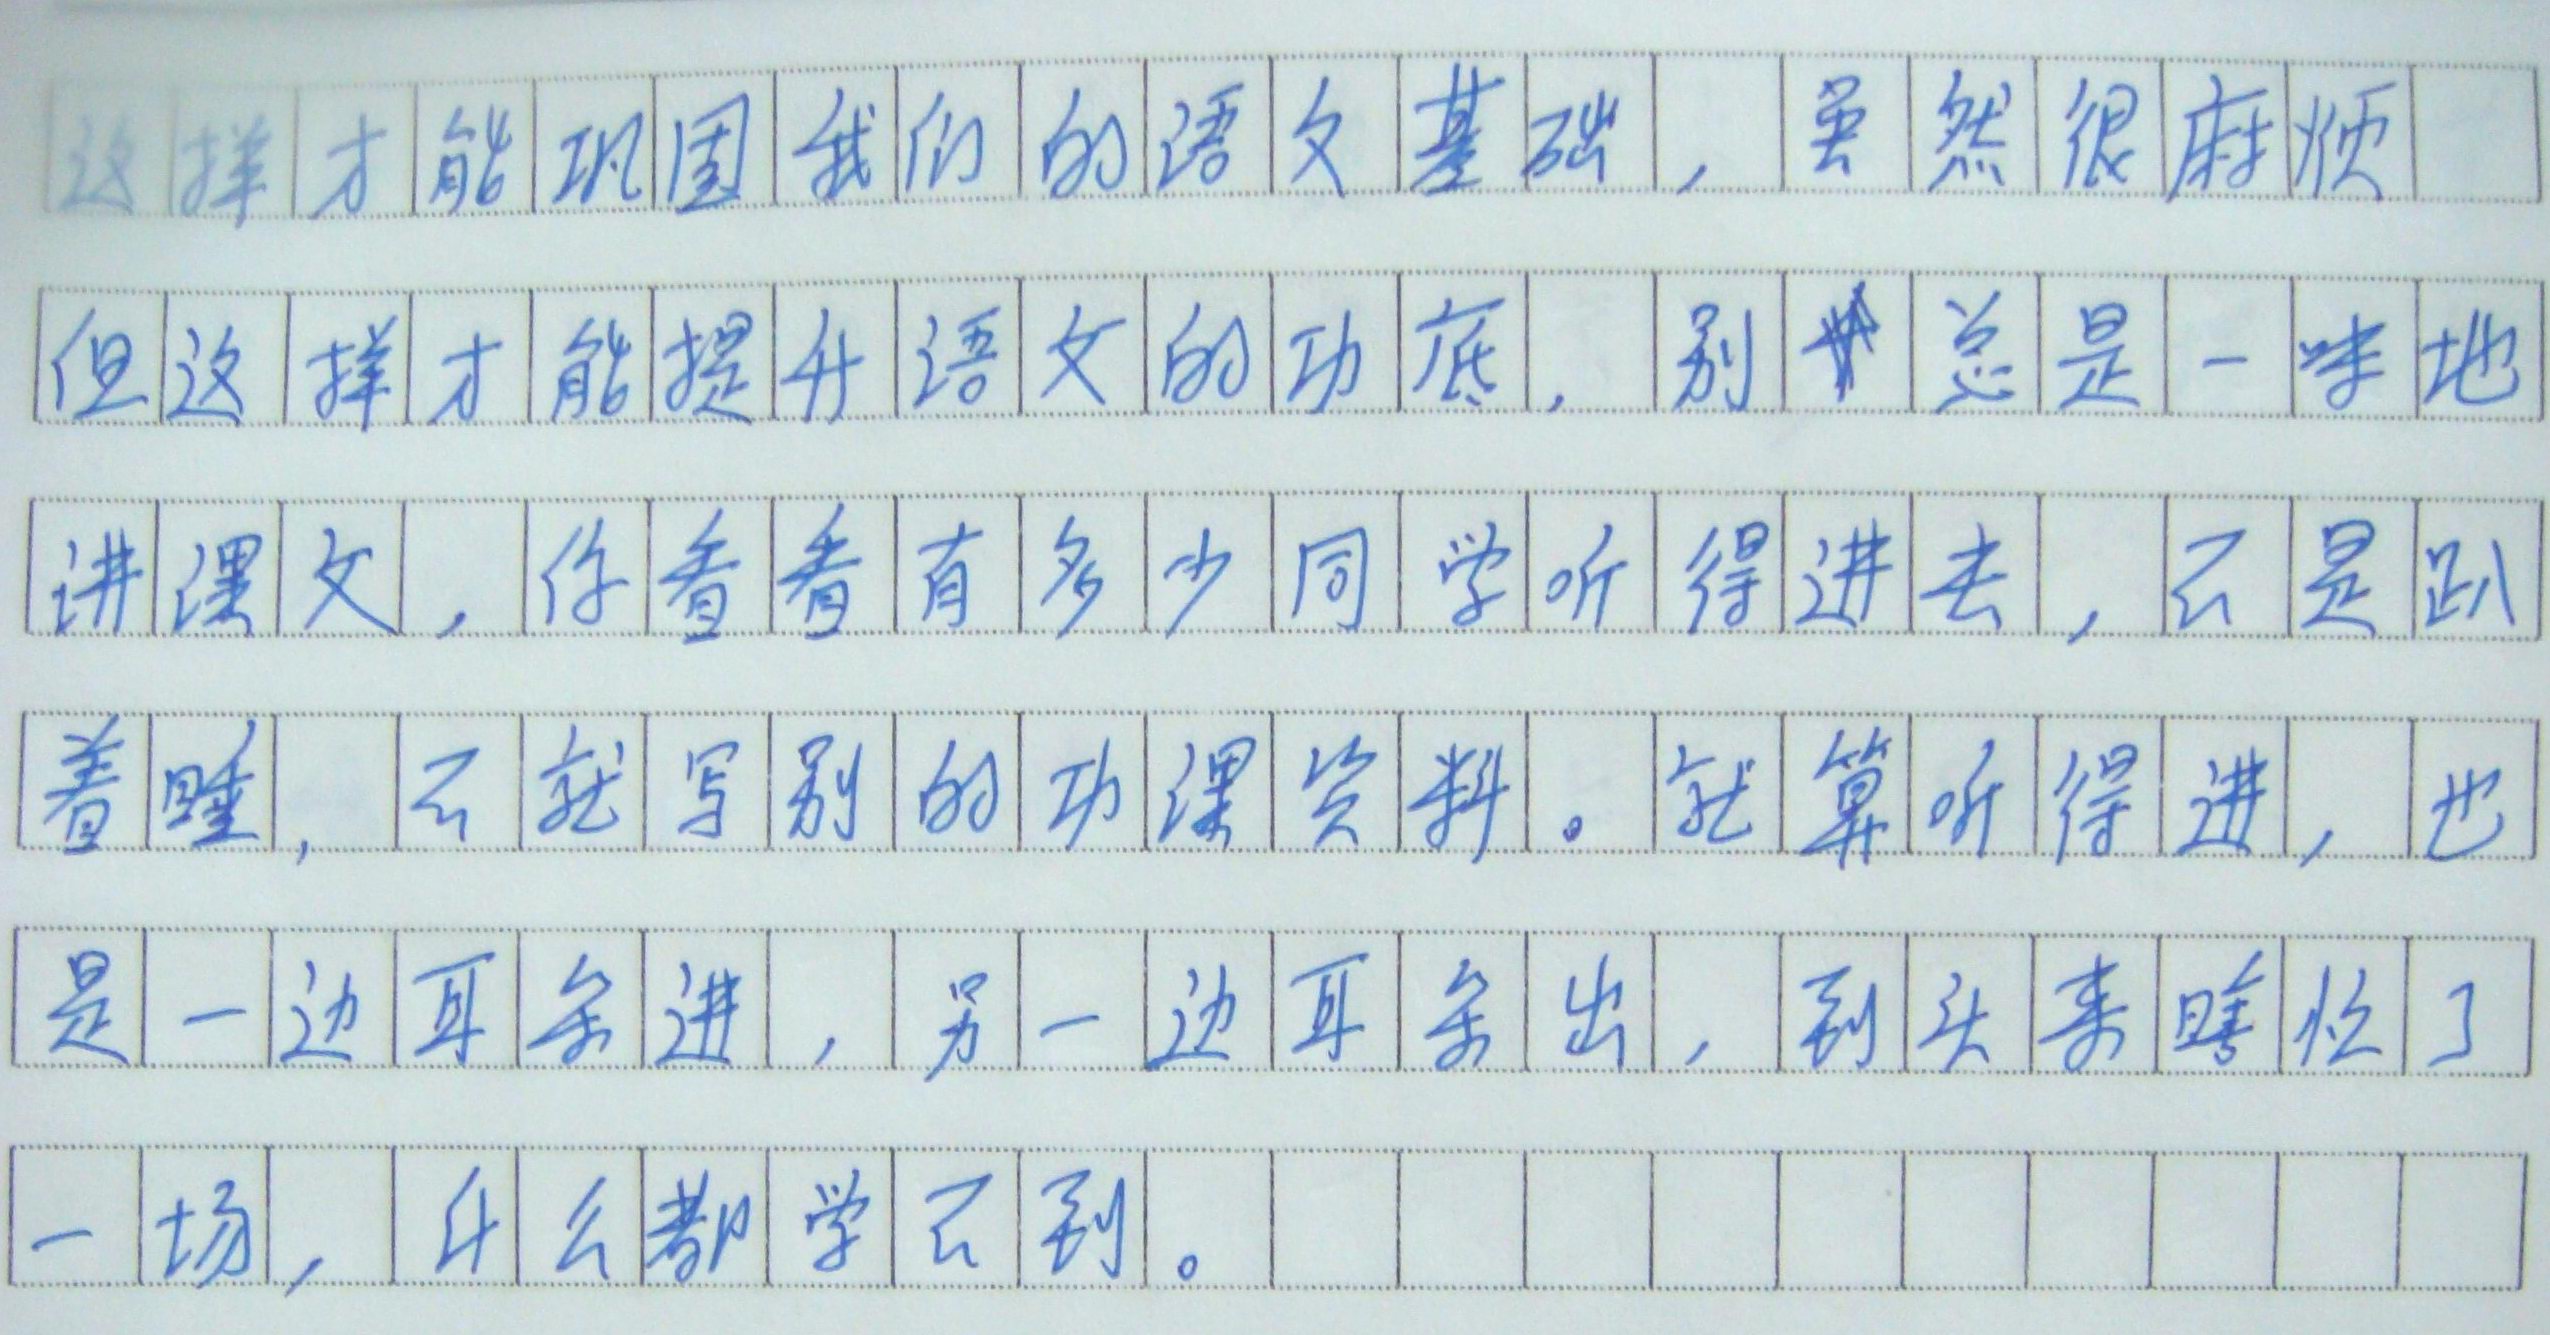 这样才能巩固我们的语文基础,虽然很麻烦
但这样才能提升语文的功底,别总是一味地
讲课文,你看看有多少同学听得进去,不是趴
着睡,不就写别的功课资料。就算听得进,也
是一边耳朵进,另一边耳朵出,到头来瞎忙了
一场,什么都学不到。